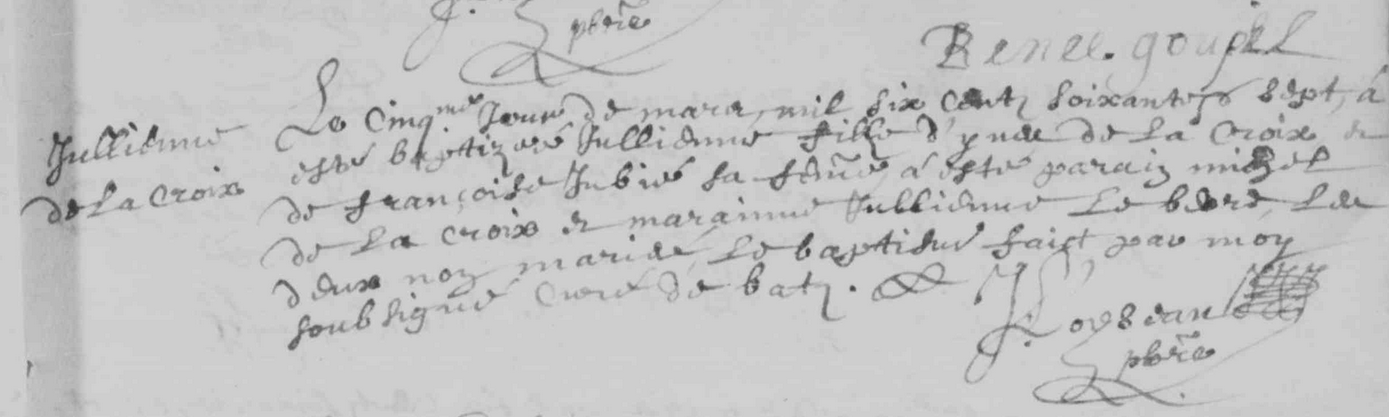 pbre
Renee. goupil
Jullienne
de la croix
Le cinqme Jour de mars, mil six centz soixantes sept, a
esté baptizeé Jullienne fille d'yves de la croix et
de françoise Jubié sa feme, a esté parain michel
de la croix et marainne Jullienne Le
deux non mariés, Le baptesme faict par moy
soubsigné curé de batz.
J. Loyseau
pbre